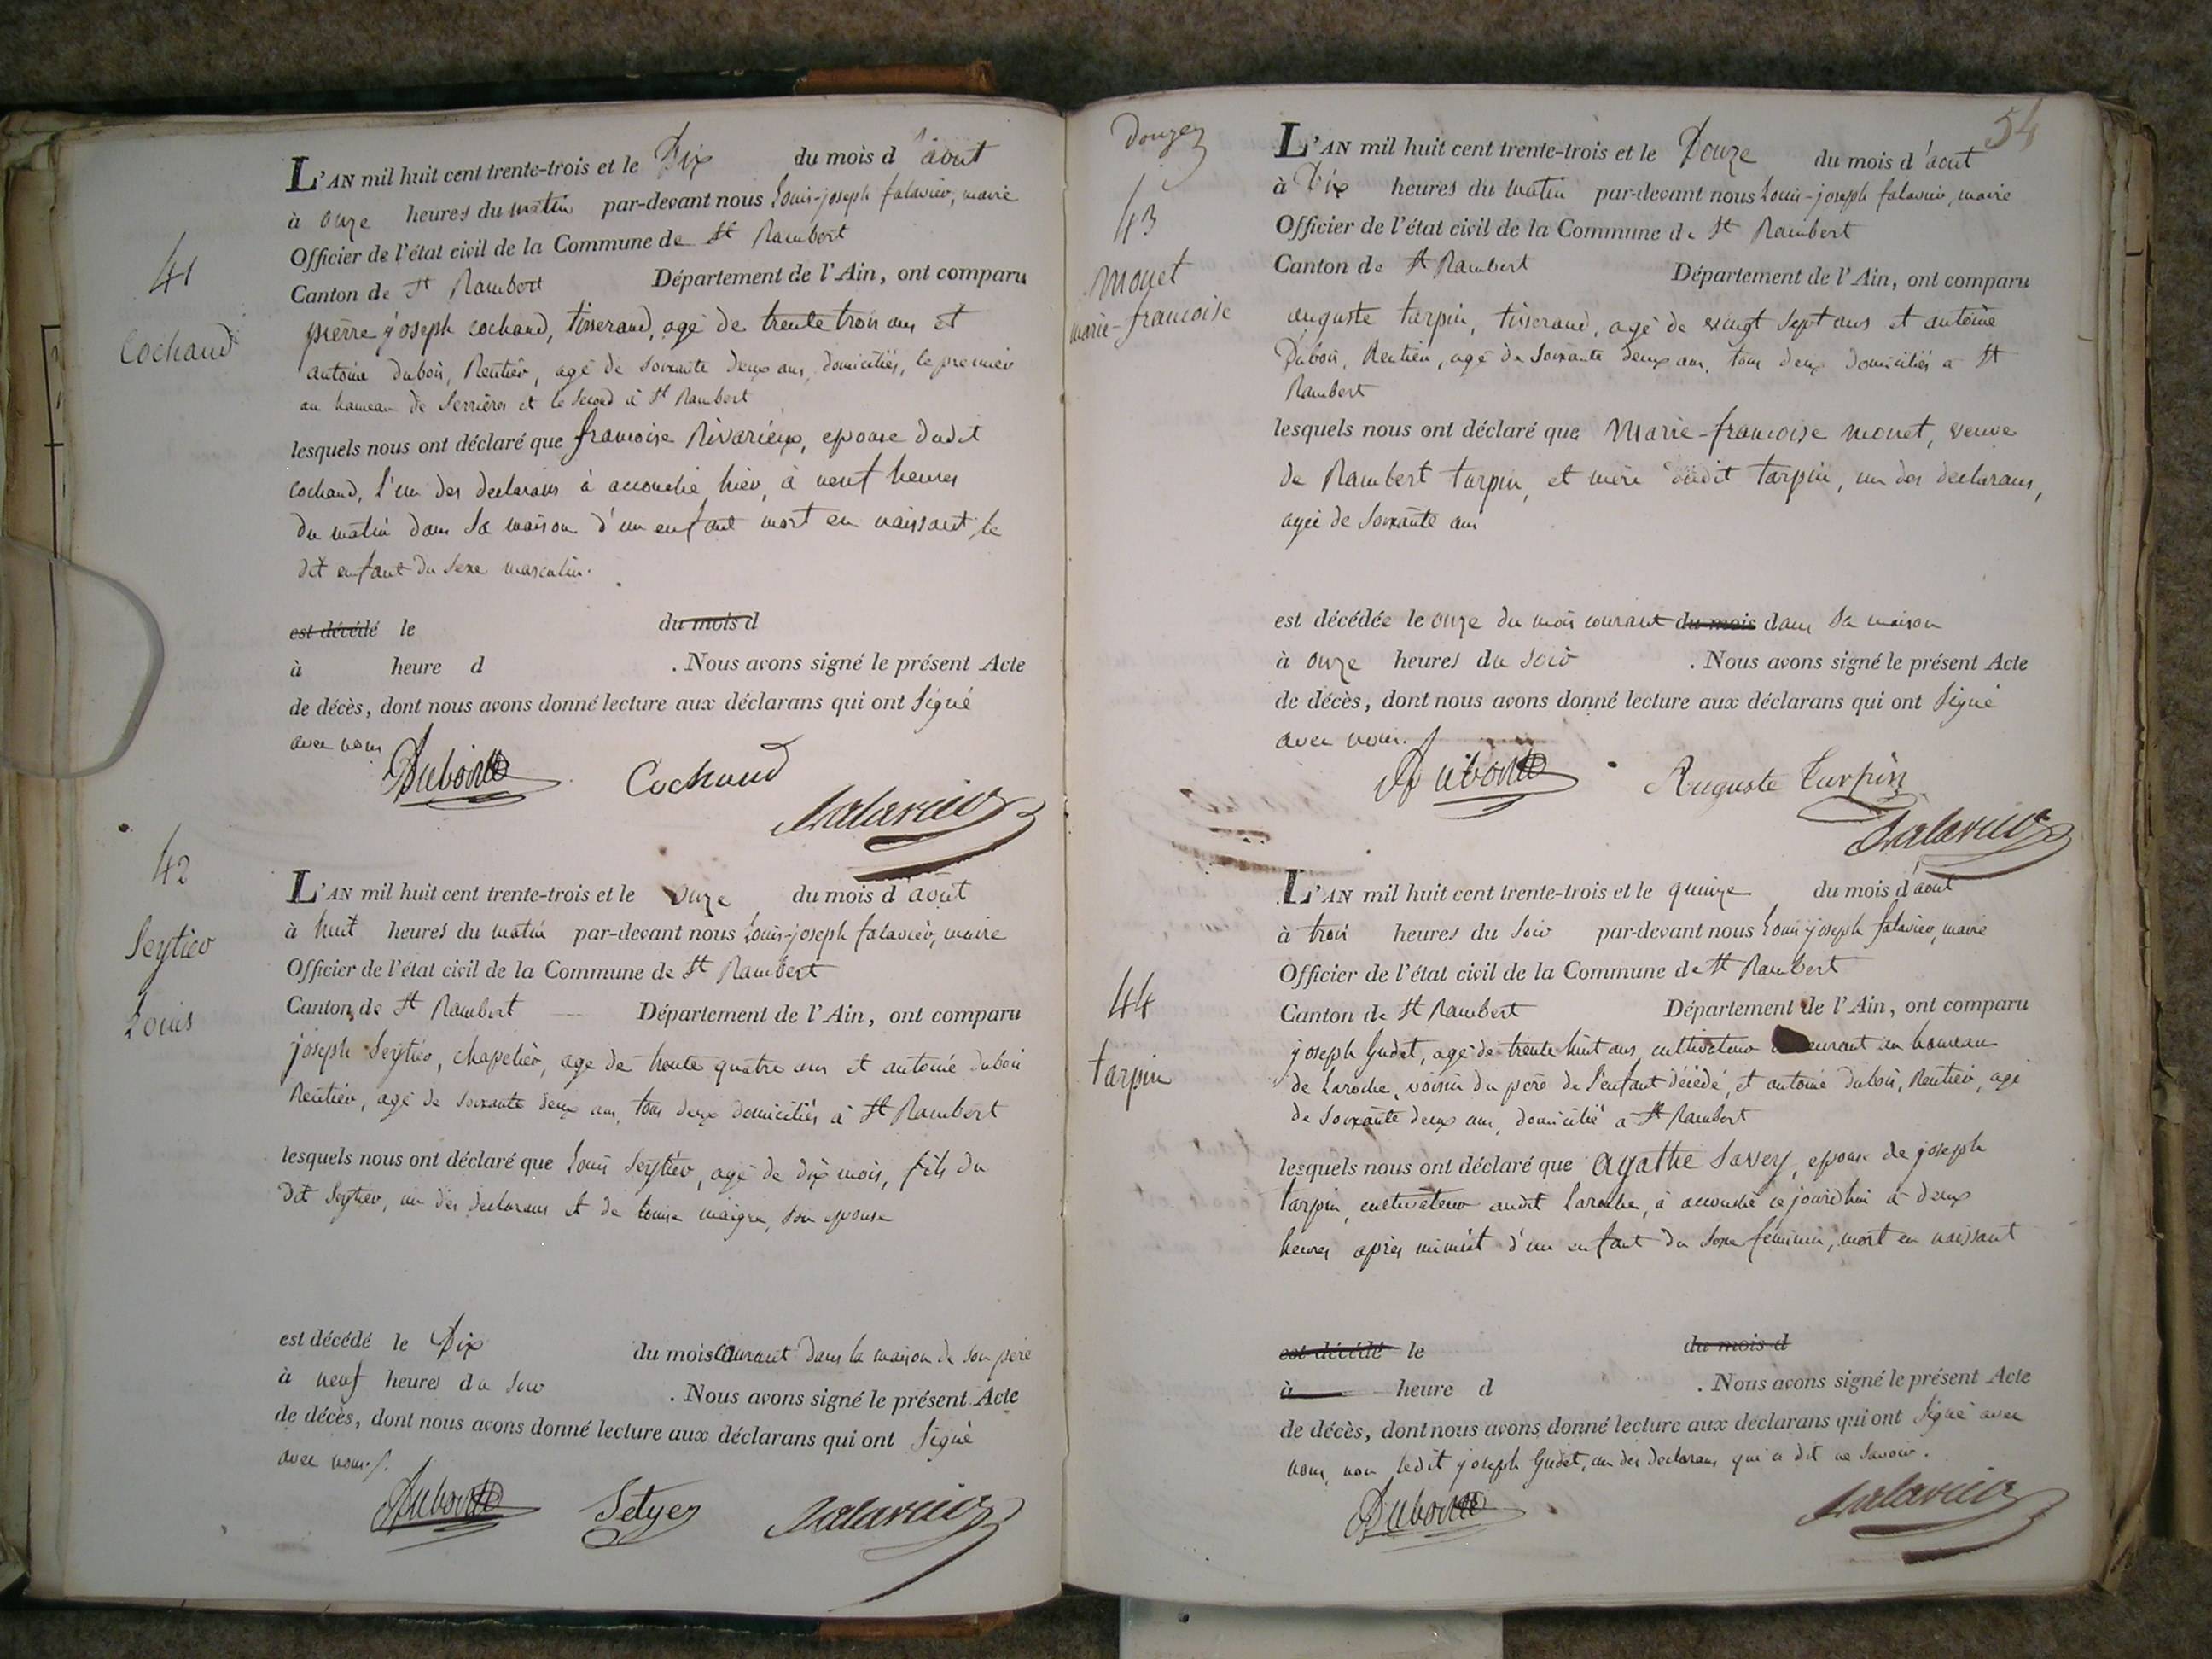 41
Cochaud
L'AN mil huit cent trente-trois et le Dix du mois d'aout
à onze heures du matin par-devant nous Louis-joseph falavier, maire
Officier de l'état civil de la Commune de St Rambert
Canton de St Rambert Département de l'Ain, ont comparu
pierre joseph cochaud, tisserand, agé de trente trois ans et
antoine dubois, Rentier, agé de soixante deux ans, domiciliés, le premier
au hameau de Serrières et le second à St Rambert
lesquels nous ont déclaré que francoise Rivarieux, epouse dudit
cochaud, l'un des declarans à accouché hier, à neuf heures
du matin dans sa maison d'un enfant mort en naissant le
dit enfant du sexe masculin.
est décédé le du mois d
à heure d . Nous avons signé le présent Acte
de décès, dont nous avons donné lecture aux déclarans qui ont signé
avec nous
Dubois Cochaud
falavier
42
Seytier
Louis
L'AN mil huit cent trente-trois et le onze du mois d'aout
à huit heures du matin par-devant nous Louis-joseph falavier, maire
Officier de l'état civil de la Commune de St Rambert
Canton de St Rambert Département de l'Ain, ont comparu
joseph Seytier, chapelier, age de trente quatre ans et antoine dubois
Rentier, agé de soixante deux ans, tous deux domiciliés à St Rambert
lesquels nous ont déclaré que Louis Seytier, agé de dix mois, fils du
dit Seytier, un des declarans et de Louise maigre, son epouse
est décédé le Dix du mois courant dans la maison de son père
à neuf heures du soir . Nous avons signé le présent Acte
de décès, dont nous avons donné lecture aux déclarans qui ont signé
avec nous./.
Dubois Setyer falavier
54
Douzes
43
monet
marie-francoise
L'AN mil huit cent trente-trois et le Douze du mois d'aout
à Dix heures du matin par-devant nous Louis-joseph falavier, maire
Officier de l'état civil de la Commune de St Rambert
Canton de St Rambert Département de l'Ain, ont comparu
auguste tarpin, tisserand, agé de vingt sept ans et antoine
Dubois, Rentier, agé de soixante deux ans, tous deux domiciliés a St
Rambert
lesquels nous ont déclaré que Marie-francoise monet, veuve
de Rambert tarpin, et mère dudit tarpin, un des declarans,
agée de soixante ans
est décédée le onze du mois courant du mois dans sa maison
à onze heures du soir . Nous avons signé le présent Acte
de décès, dont nous avons donné lecture aux déclarans qui ont signé
avec nous.
Dubois Auguste Tarpin
falavier
44
tarpin
L'AN mil huit cent trente-trois et le quinze du mois d'aout
à trois heures du soir par-devant nous Louis joseph falavier, maire
Officier de l'état civil de la Commune de St Rambert
Canton de St Rambert Département de l'Ain, ont comparu
joseph Gudet, agé de trente huit ans, cultivateur au hameau
de Laroche, voisin du père de l'enfant décédé, et antoine dubois, Rentier, agé
de soixante deux ans, domicilié a St Rambert
lesquels nous ont déclaré que agathe Savey, epouse de joseph
tarpin, cultivateur audit Laroche, à accouché ce jourd'hui à deux
heures après minuit d'un enfant du sexe féminin, mort en naissant
est décédé le du mois d
à heure d . Nous avons signé le présent Acte
de décès, dont nous avons donné lecture aux déclarans qui ont signé avec
nous, non ledit joseph Gudet, un des declarans qui a dit ne savoir.
Dubois falavier